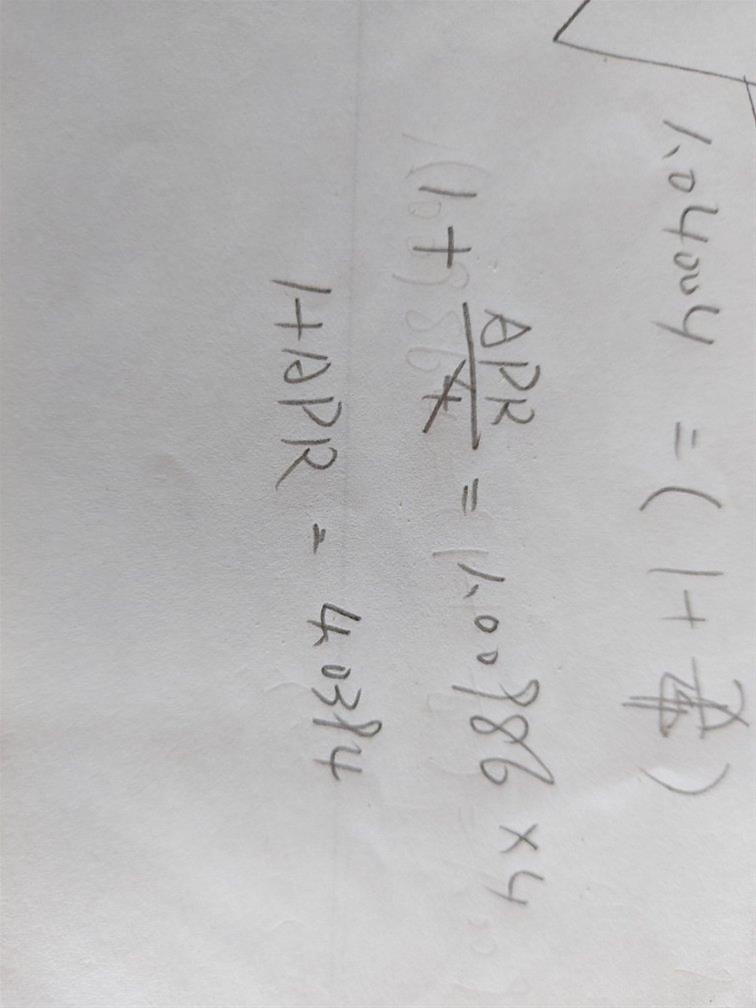 1.04004 = (1+ )
1+ APR/4 = 1.00986 ×4
1+APR = 4.0394